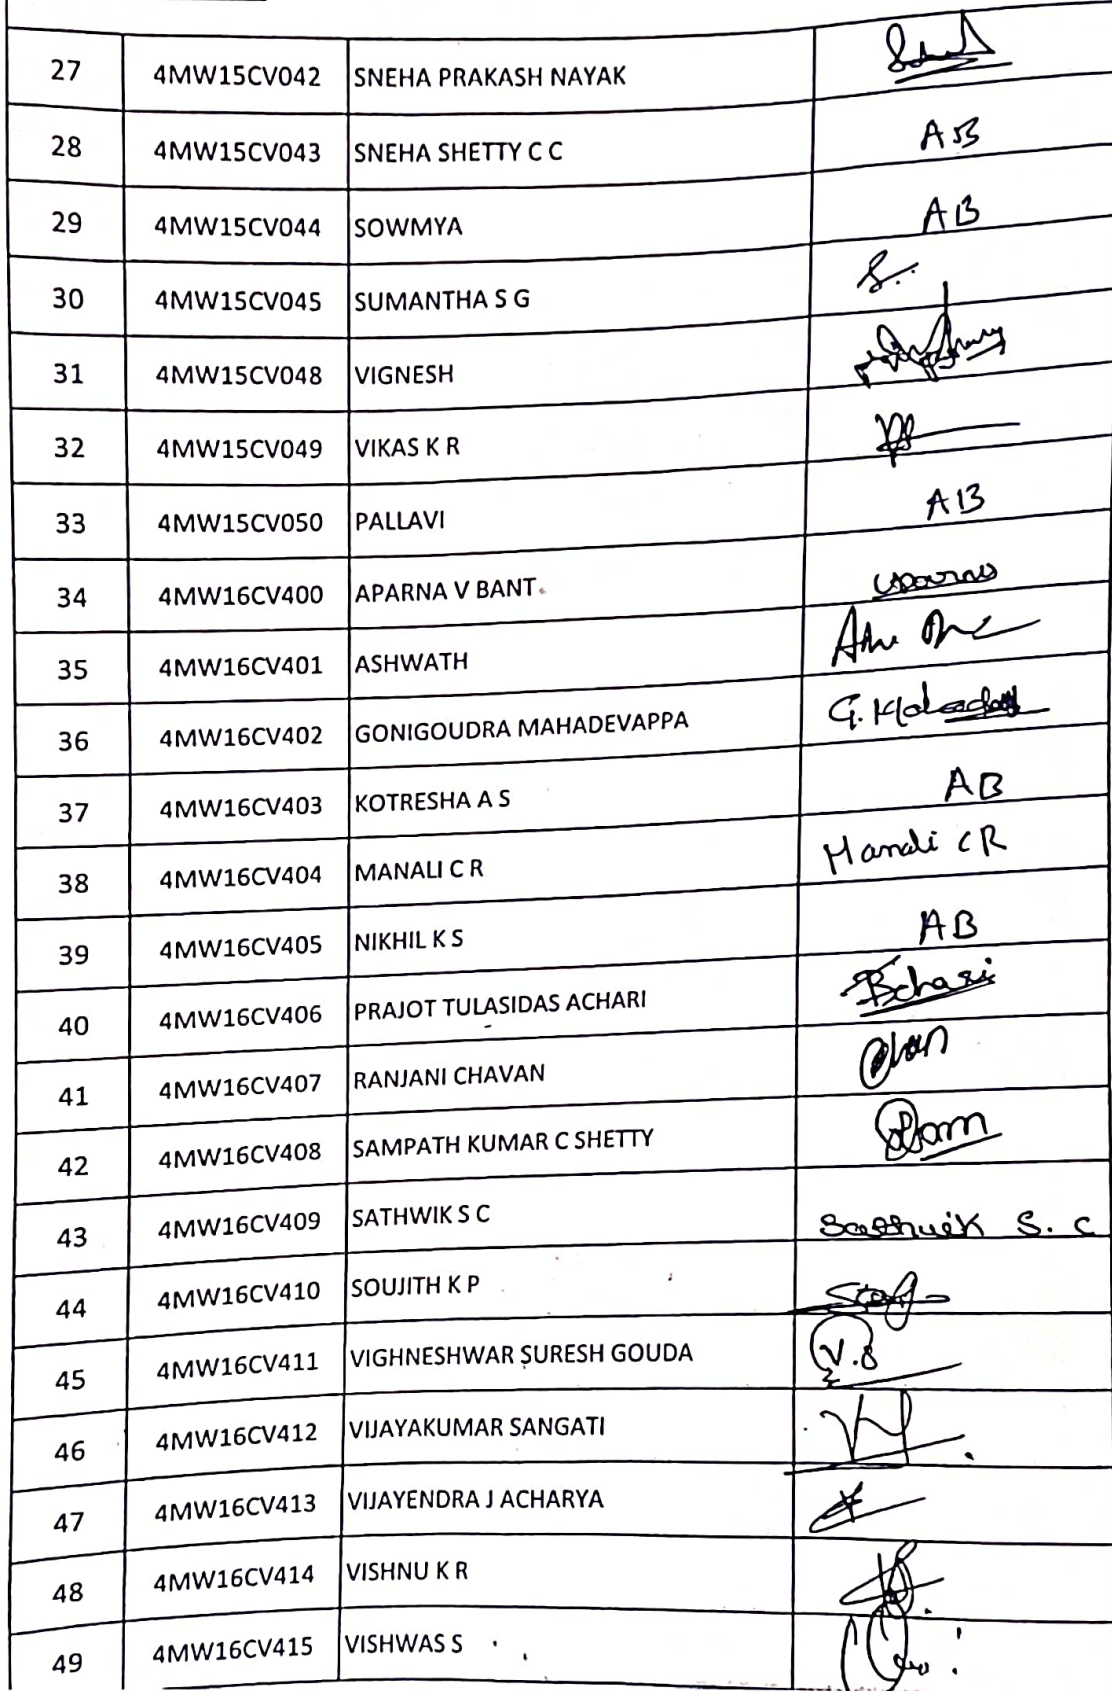 27 4MW15CV042 SNEHA PRAKASH NAYAK
28 4MW15CV043 SNEHA SHETTY C C AB
29 4MW15CV044 SOWMYA AB
30 4MW15CV045 SUMANTHA S G S..
31 4MW15CV048 VIGNESH
32 4MW15CV049 VIKAS K R
33 4MW15CV050 PALLAVI AB
34 4MW16CV400 APARNA V BANT
35 4MW16CV401 ASHWATH
36 4MW16CV402 GONIGOUDRA MAHADEVAPPA
37 4MW16CV403 KOTRESHA A S AB
38 4MW16CV404 MANALI C R Manali C R
39 4MW16CV405 NIKHIL K S AB
40 4MW16CV406 PRAJOT TULASIDAS ACHARI
41 4MW16CV407 RANJANI CHAVAN
42 4MW16CV408 SAMPATH KUMAR C SHETTY
43 4MW16CV409 SATHWIK S C Sathwik S. C
44 4MW16CV410 SOUJITH K P
45 4MW16CV411 VIGHNESHWAR SURESH GOUDA V.S
46 4MW16CV412 VIJAYAKUMAR SANGATI
47 4MW16CV413 VIJAYENDRA J ACHARYA
48 4MW16CV414 VISHNU K R
49 4MW16CV415 VISHWAS S